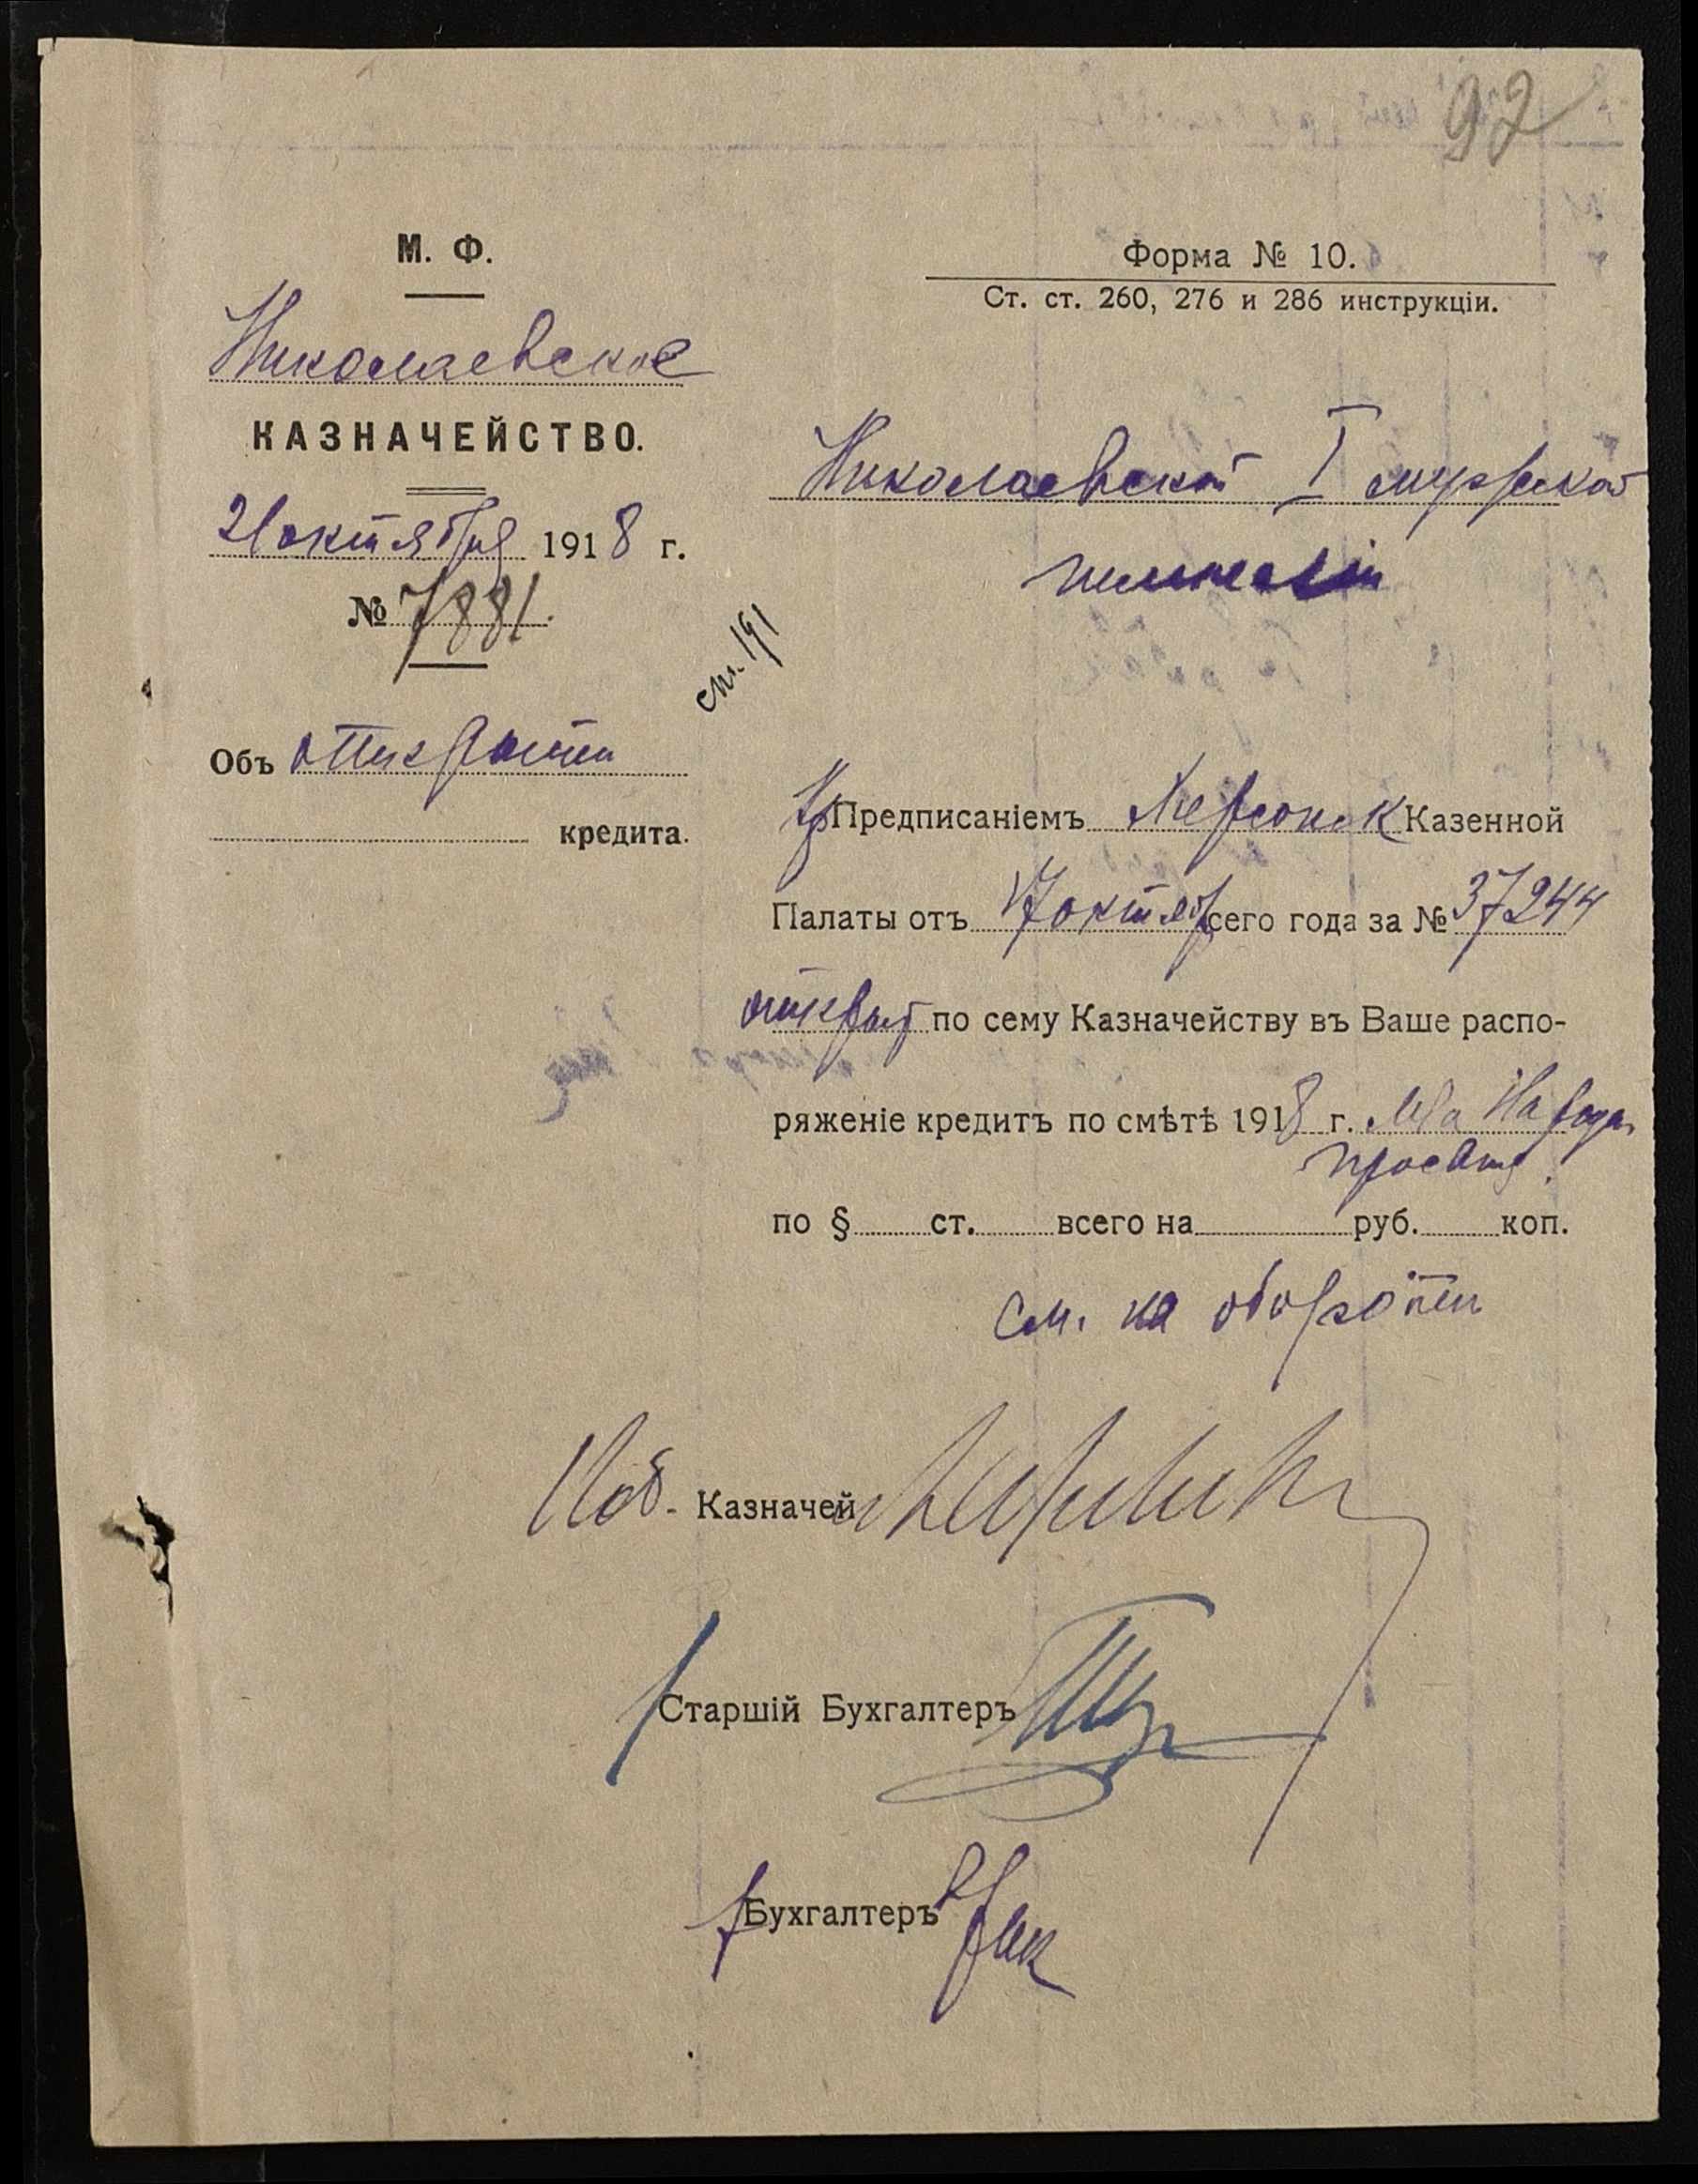 92
М. Ф.
Николаевское
КАЗНАЧЕЙСТВО.
21 октября 1918 г.
№ 7881.
Объ открытіи
кредита.
Форма № 10.
Ст. ст. 260, 276 и 286 инструкціи.
Николаевской I мужской
гимназіи
ст. 191
Предписаніемъ Херсонск Казенной
Палаты отъ 17 октяб сего года за № 37244
открыт по сему Казначейству въ Ваше распо-
ряженіе кредитъ по смѣтѣ 1918 г. М-ва Народн.
просвѣщ.
по § ст. всего на руб. коп.
см. на оборотѣ
Казначей
Старшій Бухгалтеръ
Бухгалтеръ